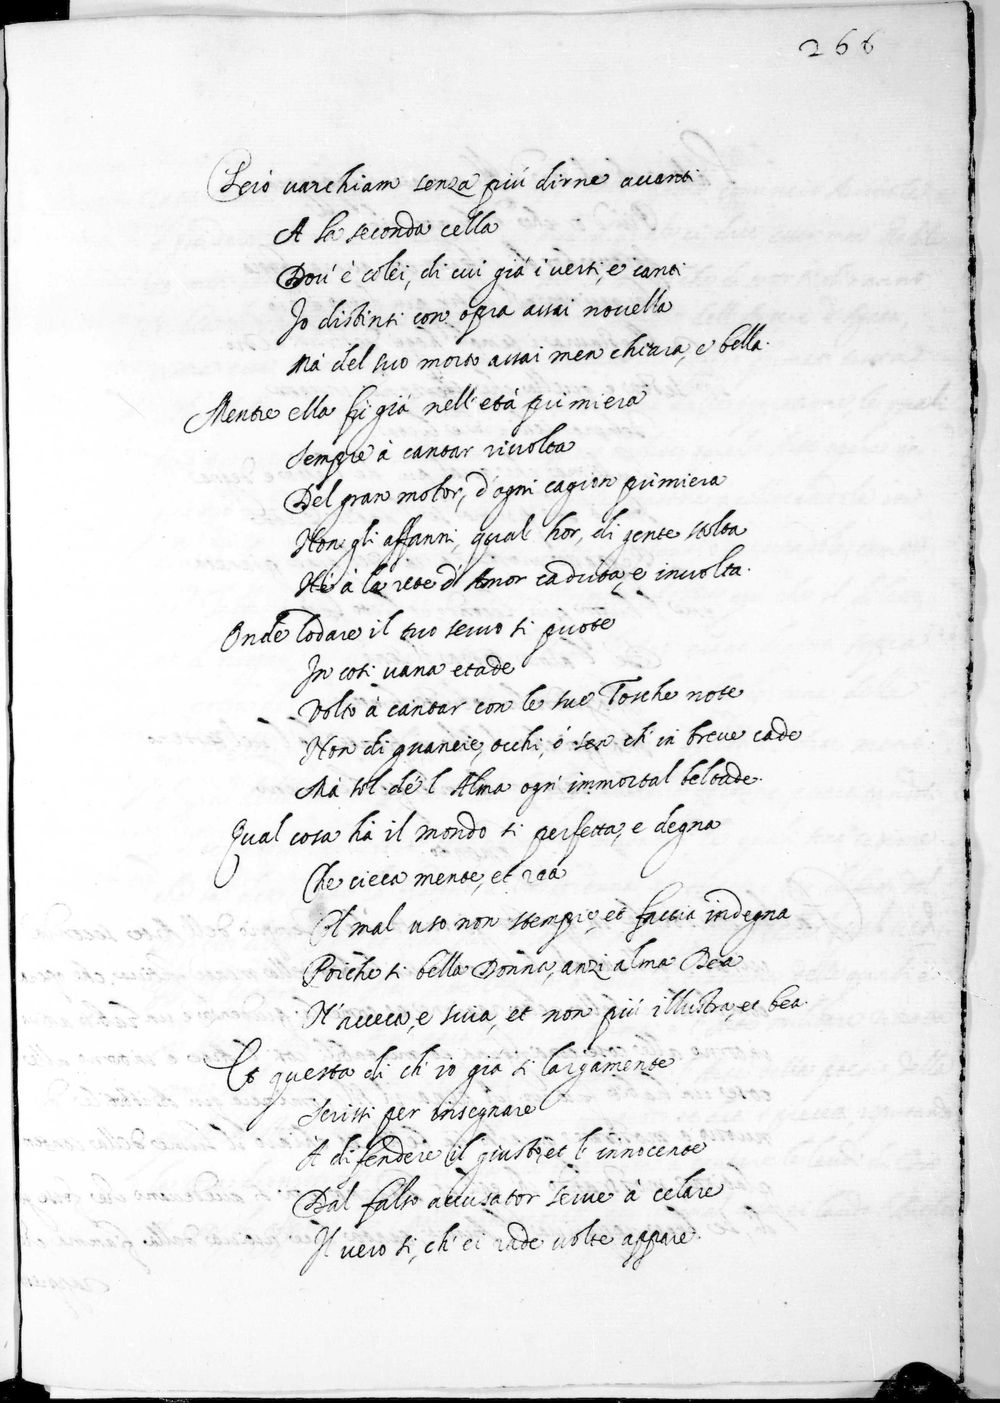 266
Però varchiam senza più dirne avanti
A la seconda cella
Dov' è colei, di cui già i versi, e canti
Io distinti con opra assai novella
Mà del suo morto assai men chiara, e bella.
Mentre ella fù già nell' età primiera
Sempre à cantar rivolta
Del gran motor, d'ogni cagion primiera
Non gli affanni, qual hor, di gente stolta
Nè à la rete d' Amor caduta, e involta.
Onde lodare il tuo servo si puote
In così vana etade
Volto à cantar con le sue Tosche note
Non di guancie, occhi, ò sen ch' in breve cade
Mà sol de l' Alma ogn' immortal beltade.
Qual cosa hà il mondo sì perfetta, e degna
Che cieca mente, et rea
Al mal uso non stempre, et faccia indegna
Poiche sì bella Donna, anzi alma Dea
N' acceca, e svia, et non più illustra, et bea.
Et questa di ch' io già sì largamente
Scrissi per insegnare
A difendere il giusto, et l' innocente
Dal falso accusator serve à celare
Il vero sì, ch' ei rade volte appare.